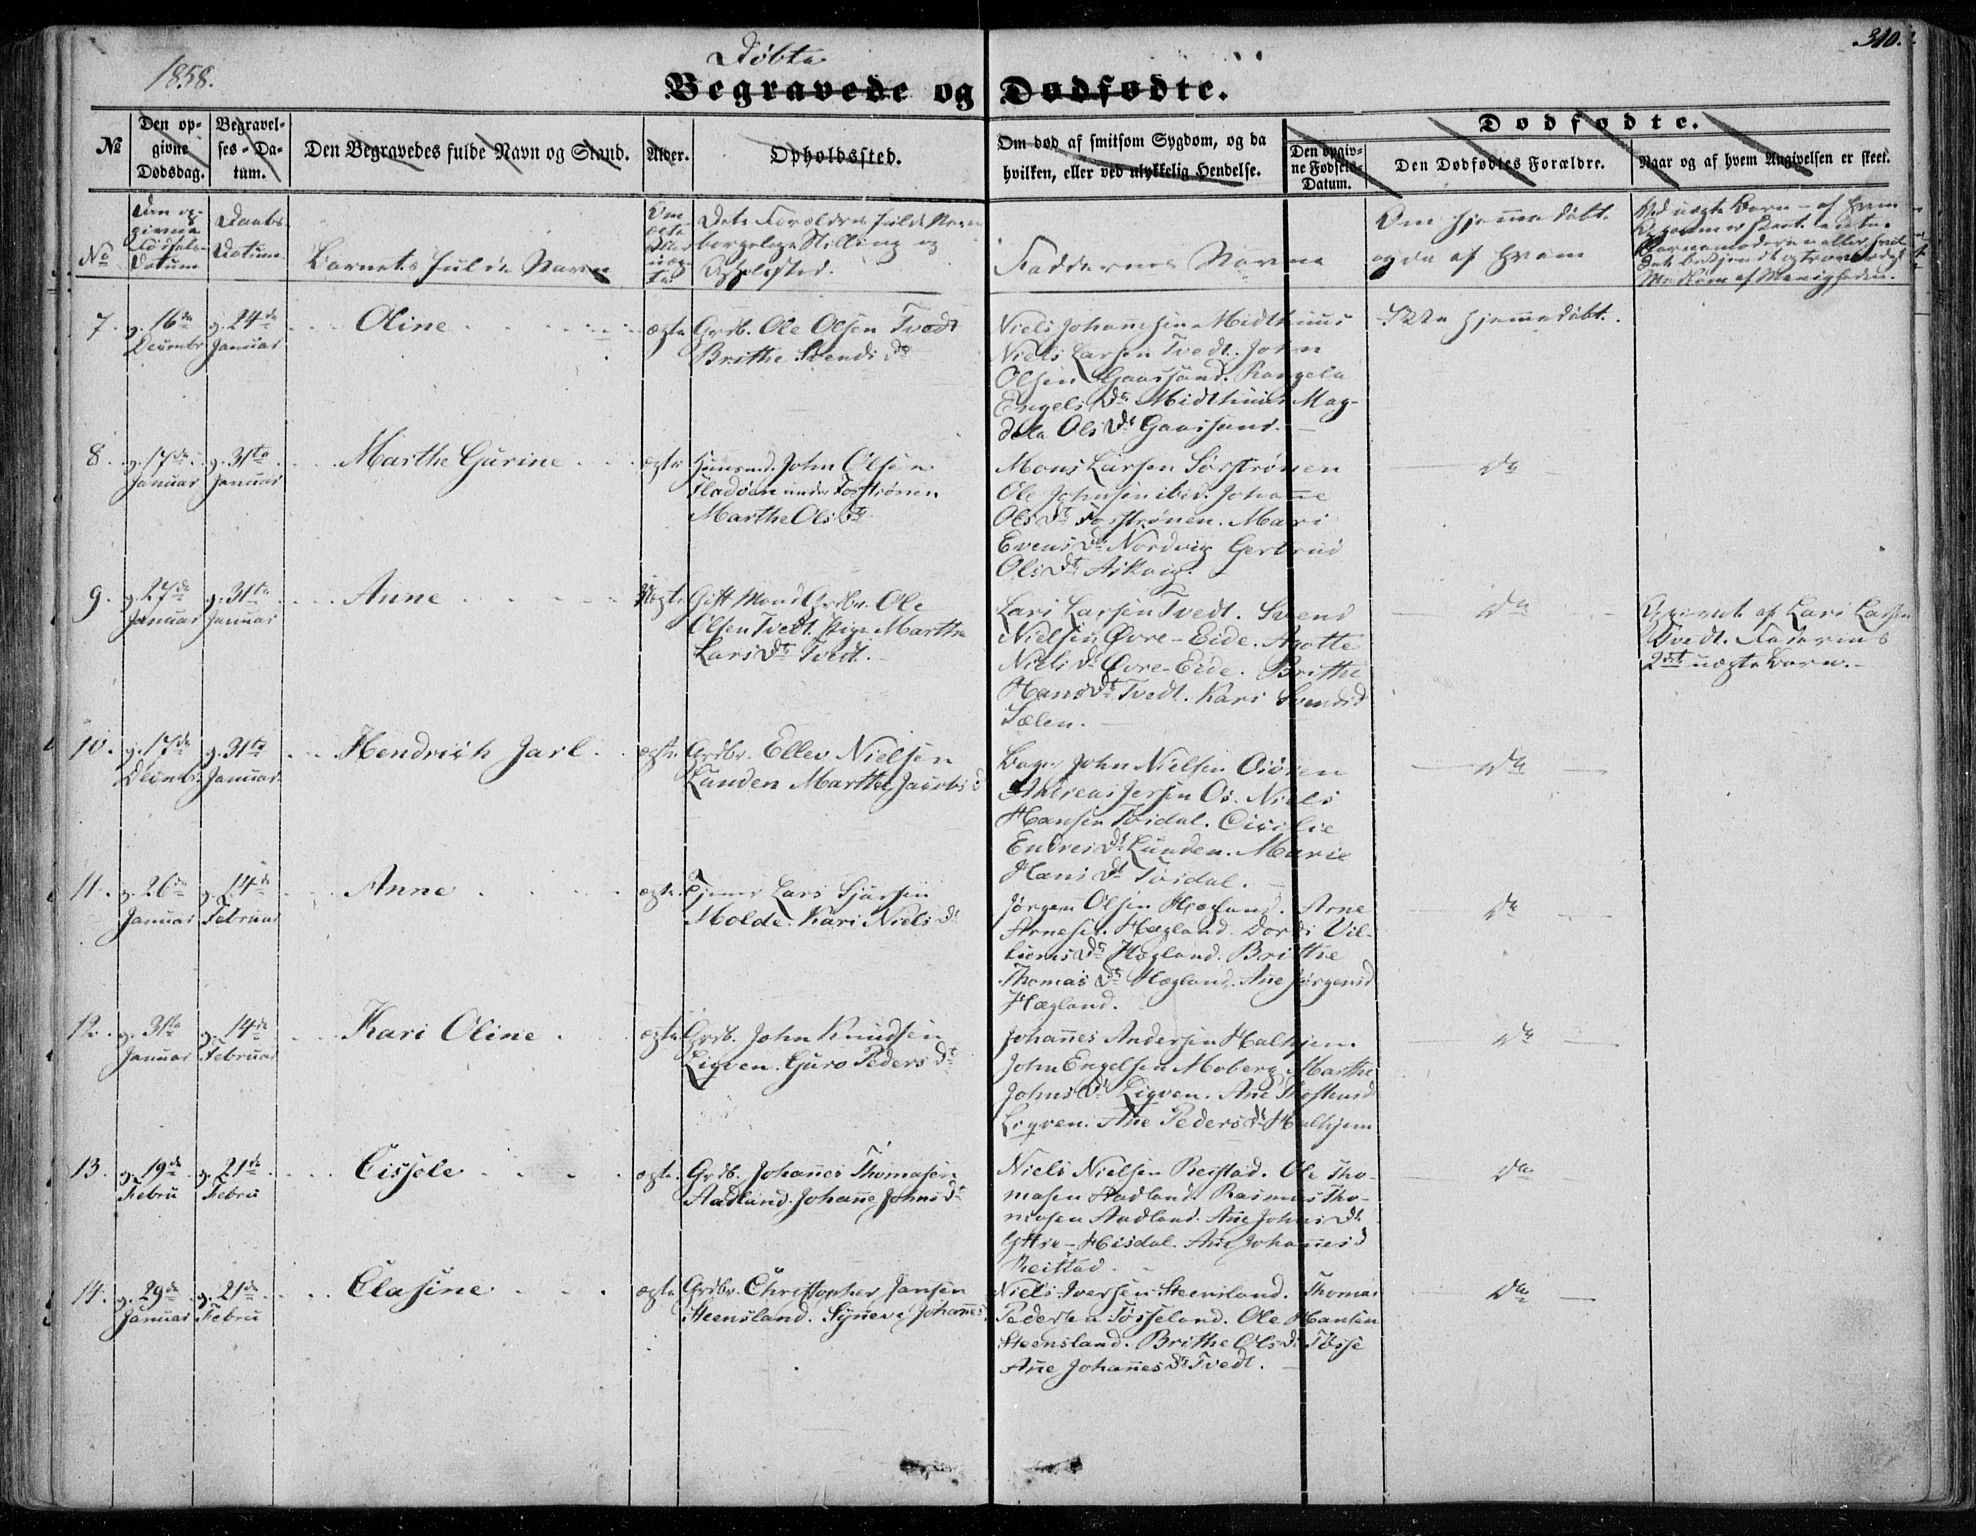 1858.
Døbte
310.
Begravede og Dødfødte.
№
Den op-
givne
Dødsdag.
Begravel-
ses-Da-
tum.
Den Begravedes fulde Navn og Stand.
Alder.
Opholdssted.
Om død af smitsom Sygdom, og da
hvilken, eller ved ulykkelig Hendelse.
Dødfødte.
Den opgiv-
ne Fødsels-
Datum.
Den Dødfødtes Forældre.
Naar og af hvem Angivelsen er skeet.
No
Den op-
givne
Fødsels-
Datum
Daabs
Datum
Barnets fulde Navn
Om
ægte
eller
uæg-
te
Dets Forældres fulde Navn
borgelige Stilling og
Opholdsted.
Faddernes Navne
Om hjemmedøbt.
og da af hvem
7.
g. 16de
Decembr
g. 24de
Januar
Oline
ægte
Grdb. Ole Olsen Tvedt
Brithe Svends Dr
Niels Johannesen Midthuus
Niels Larsen Tvedt. John
Olsen Gaassand. Rangela
Engels Dr Midthuus Mag-
dela Ols Dr Gaassand.
Ikke hjemmedøbt.
8.
g. 17de
Januar
g. 31te
Januar
Marthe Gurine
ægte
Huusmd. John Olsen
Fladøen under Forstrønen
Marthe Ols Dr
Mons Larsen Sørstrønen
Ole Johnsen ibid. Johanne
Ols Dr Forstrønen. Mari
Evens Dr Nordvig Gertrud
Ols Dr Askvig.
Do
9.
g. 27de
Januar
g. 31te
Januar
Anne
Uægte
Gift Mand Grdbr. Ole
Olsen Tvedt. Pige Marthe
Lars Dr Tvedt.
Lars Larsen Tvedt. Svend
Nielsen Øvre-Eide. Agotte
Niels Dr Øvre-Eide. Brithe
Hans Dr Tvedt. Kari Svends d
Sælen.
Do
Opgivet af Lars Larsen
Tvedt. Faderens
2det uægte Barn.
10.
g. 17de
Decembr
g. 31te
Januar
Hendrich Jarl
ægte
Grdbr. Ellev Nielsen
Lunden Marthe Jacobs d
Bager John Nielsen Osøren
Andreas Jersen Os. Niels
Hansen Tøsdal. Cicilie
Endres Dr Lunden. Marie
Hans Dr Tøsdal.
Do
11.
g. 26de
Januar
g. 14de
Februar
Anne
ægte
Tjener Lars Sjursen
Molde. Kari Niels Dr
Jørgen Olsen Hægland. Arne
Arnesen Hægland. Dordi Vil-
liems Dr Hægland. Brithe
Thomas Dr Hægland. Ane Jørgens d
Hægland.
Do
12.
g. 31te
Januar
g. 14de
Februar
Kari Oline
ægte
Grdb. John Knudsen
Liqven. Guro Peders Dr
Johannes Andersen Halhjem.
John Engelsen Moberg. Marthe
Johns Dr Liqven. Ane
Liqven. Ane Peders Dr Halhjem
Do
13.
g. 19de
Febru
g. 21de
Febru
Cissele
ægte
Grdb. Johannes Thomasen
Aadland. Johanne Johns Dr
Niels Nielsen Reistad. Ole Tho-
masen Aadland. Rasmus Tho-
masen Aadland. Ane Johns Dr
Yttre-Hisdal. Ane Johannes d
Reistad.
Do
14.
g. 29de
Januar
g. 21de
Febru
Clasine
ægte
Grdbr. Christopher Jansen
Steensland. Synneve Johannes
Niels Iversen Steensland. Thomas
Pedersen Tøsseland. Ole Hansen
Steensland. Brithe Ols Dr Tøsse
Ane Johannes Dr Tvedt.
Do